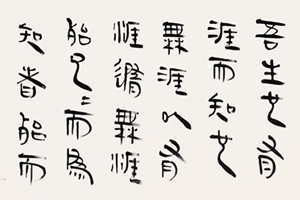 吾生也有
涯而知也
無涯以有
涯隨無涯
殆已〻而為
知者殆而